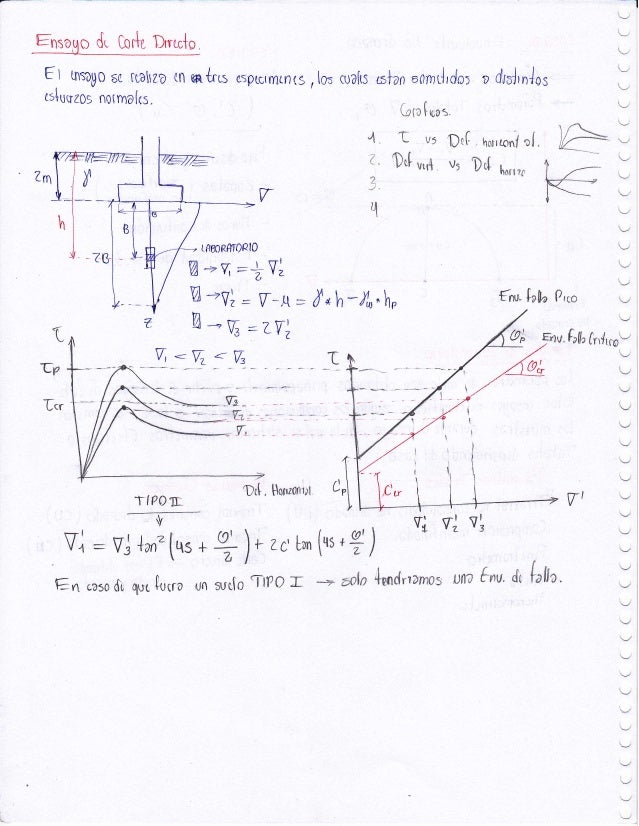 Ensayo de Corte Directo.
El ensayo se realiza en tres especimenes, los cuales estan sometidos a distintos
esfuerzos normales.
Graficas.
1. τ vs Def. horizontal.
2. Def vert. vs Def horizo
3.
4
2m
γ
h
B
B
2B
σ
z
LABORATORIO
→ σ₁ = 1/2 σ₂'
→ σ₂' = σ - μ = γ * h - γw * hp
→ σ₃ = 2 σ₂'
σ₁ < σ₂ < σ₃
τ
τp
τcr
σ₃
σ₂
σ₁
Def. Horizontal
Env. falla Pico
Ø'p
Env. falla Crítico
Ø'cr
τ
C'p
C'cr
σ'
σ₁' σ₂' σ₃'
TIPO II
σ₁' = σ₃' tan² (45 + Ø'/2) + 2c' tan (45 + Ø'/2)
En caso de que fuera un suelo TIPO I → solo tendriamos una Env. de falla.